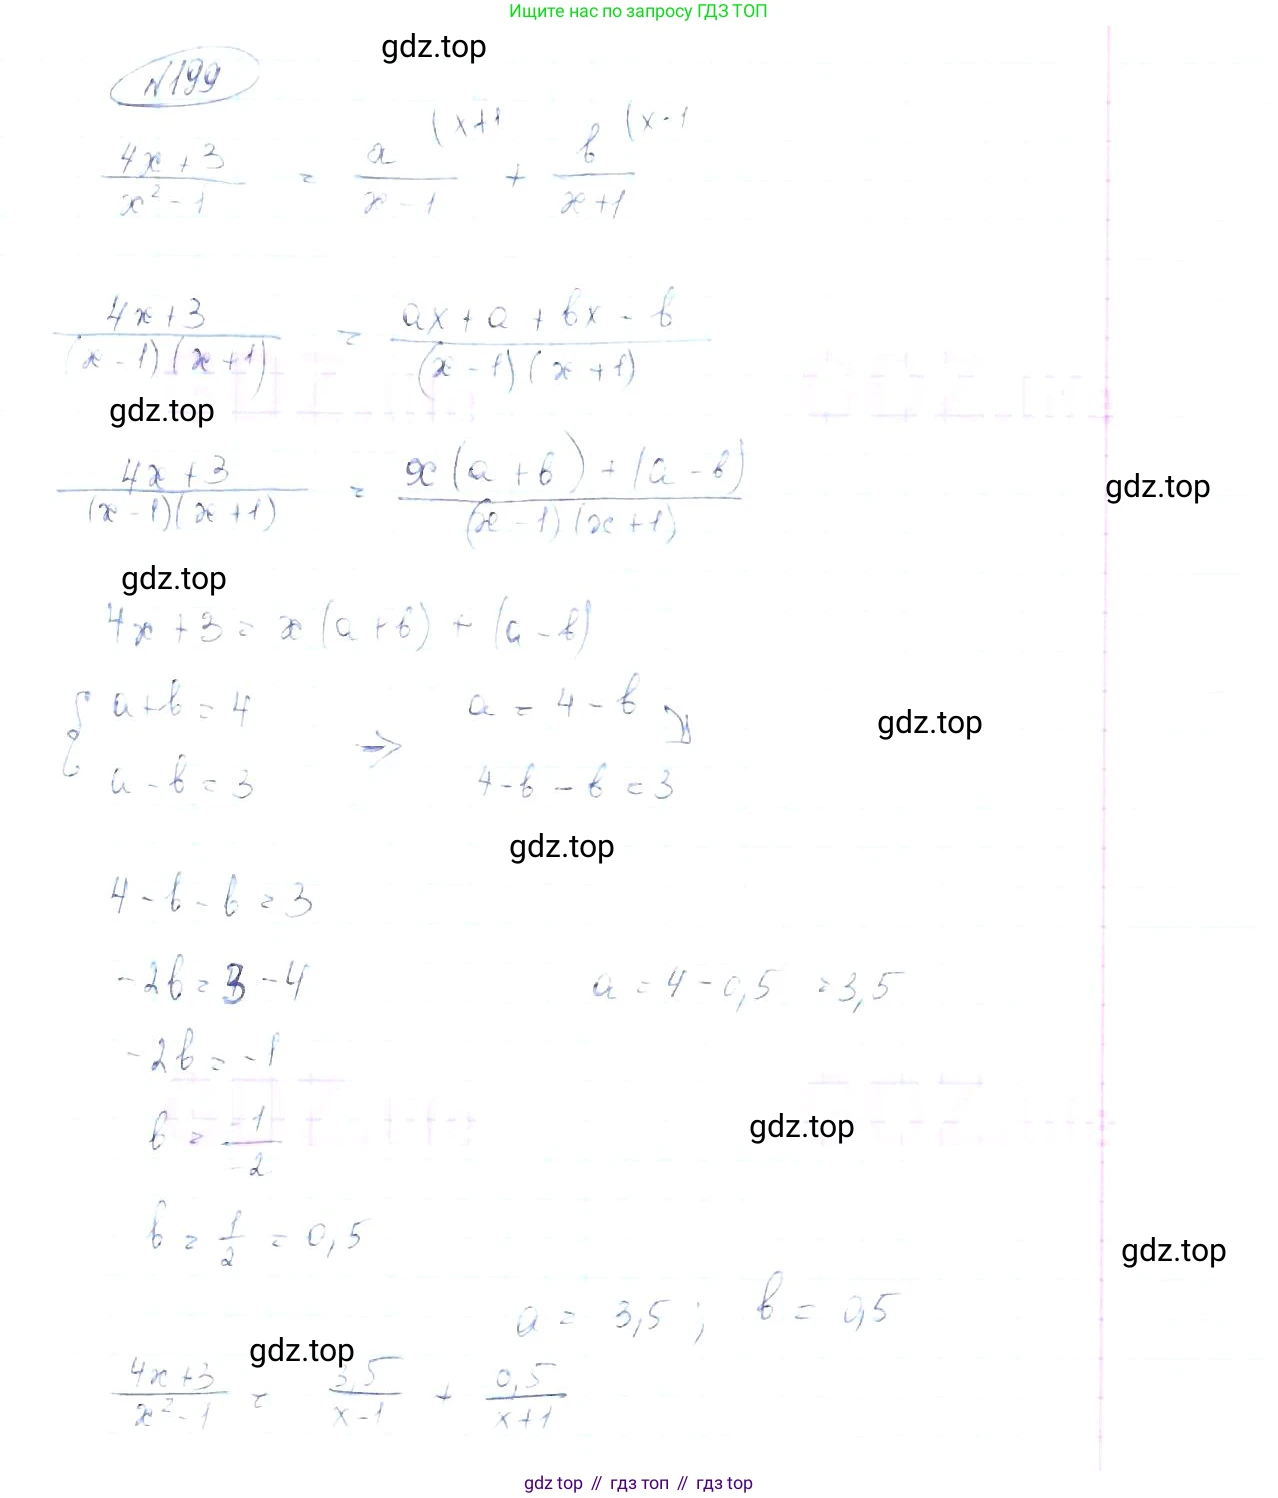 Ищите нас по запросу ГДЗ ТОП
gdz.top
№199
(x+1 (x-1
4x+3 / x²-1 = a / x-1 + b / x+1
4x+3 / (x-1)(x+1) = ax+a+bx-b / (x-1)(x+1)
gdz.top
4x+3 / (x-1)(x+1) = x(a+b)+(a-b) / (x-1)(x+1)
gdz.top
gdz.top
4x+3 = x(a+b)+(a-b)
{ a+b=4 → a=4-b
gdz.top
a-b=3 4-b-b=3
gdz.top
4-b-b=3
-2b=3-4 a=4-0,5=3,5
-2b=-1
b = -1 / -2
gdz.top
b = 1/2 = 0,5
gdz.top
a=3,5; b=0,5
gdz.top
4x+3 / x²-1 = 3,5 / x-1 + 0,5 / x+1
gdz top // гдз топ // гдз top